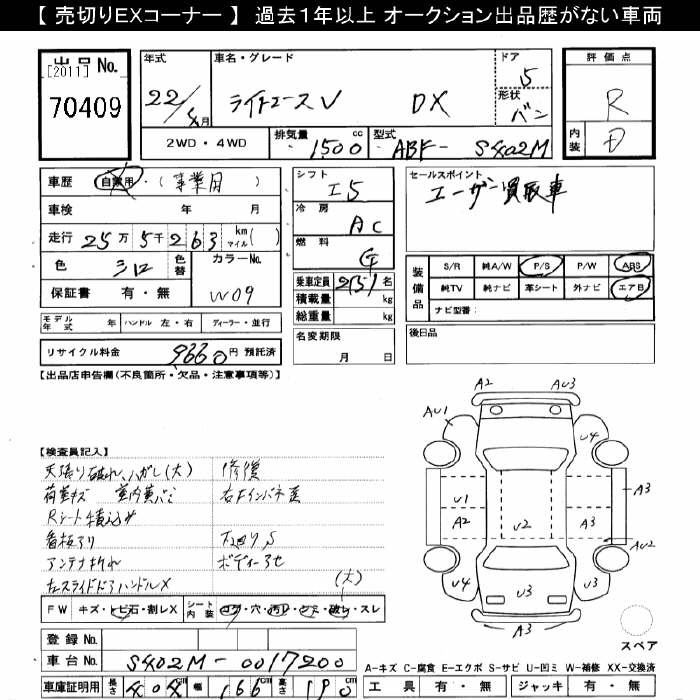 【 売切りEXコーナー 】 過去1年以上 オークション出品歴がない車両
出品 No.
[2011]
70409
年式
22/4月
車名・グレード
ライトエースV DX
ドア
5
形状
バン
評価点
R
内装
D
2WD・4WD
排気量
1500
cc
型式
ABF- S402M
車歴
自家用・(事業用)
車検 年 月
走行 25万5千263 km マイル( )
色
シロ
色替
カラーNo.
W09
保証書 有・無
シフト
I5
冷房
AC
燃料
G
乗車定員 2(5)名
積載量 kg
総重量 kg
名変期限
月 日
セールスポイント
ユーザー買取車
装備品
S/R 純A/W P/S P/W ABS
純TV 純ナビ 革シート 外ナビ エアB
ナビ型番:
後日品
モデル年式 年 ハンドル 左・右 ディーラー・並行
リサイクル料金 9660円 預託済
【出品店申告欄(不良箇所・欠品・注意事項等)】
【検査員記入】
天張り破れ、ハガレ(大)
荷室キズ 室内黄バミ
Rシート積込み
看板アリ
アンテナ折れ
左スライドドアハンドルX
修復
右Fインパネ歪
下廻りS
ボディーアセ
(大)
FW キズ・トビ石・割レX
シート内装 コゲ・穴・汚レ・シミ・破レ・スレ
登録 No.
車台 No. S402M-0017200
車庫証明用 長さ 404 幅 166 高さ 190 cm
A2 AU3
AU1 U4
U1 A3
A2 U2 A3
AU2
U4 U3 U3
A3
スペア
A-キズ C-腐食 E-エクボ S-サビ U-凹ミ W-補修 XX-交換済
工具 有・無 ジャッキ 有・無